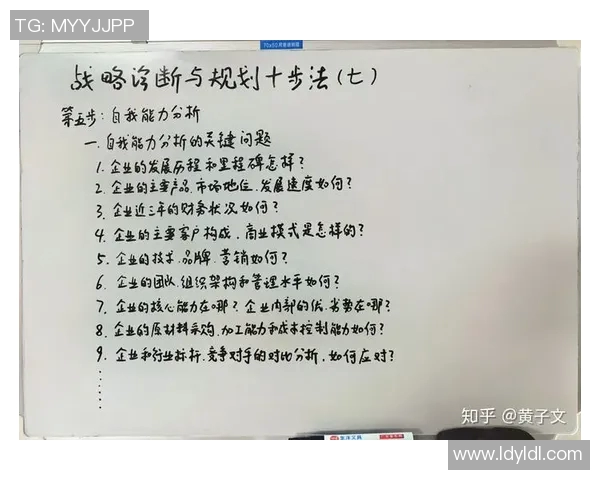 TG: MYYJJPP
70x50
战略诊断与规划十步法(七)
第五步:自我能力分析
一.自我能力分析的关键问题
1.企业的发展历程和里程碑怎样?
2.企业的主要产品.市场地位.发展速度如何?
3.企业近三年的财务状况如何?
4.企业的主要客户构成.商业模式是怎样的?
5.企业的技术.品牌.营销如何?
6.企业的团队.组织架构和管理水平如何?
7.企业的核心能力在哪?企业内部的优.劣势在哪?
8.企业的原材料采购.加工能力和成本控制能力如何?
9.企业和行业标杆.竞争对手的对比分析.如何应对?
......
知乎 @黄子文
www.ldyldl.com